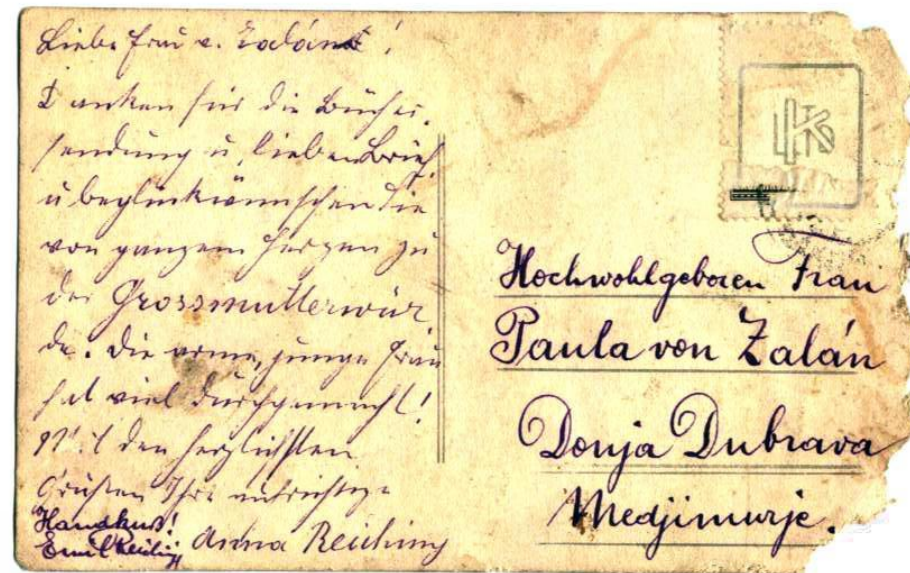 Liebe Frau v. Zalán!
Danken für die Bücher,
sendung u. lieben Brief
u beglückwünschen Sie
von ganzem Herzen zu
der Grossmutterwür
de. Die arme, junge Frau
hat viel durchgemacht!
Mit den herzlichsten
Grüßen Ihre aufrichtige
Anna Reiching
Handkuß!
Emil Reiching
Hochwohlgeboren Frau
Paula von Zalán
Donja Dubrava
Medjimurje.